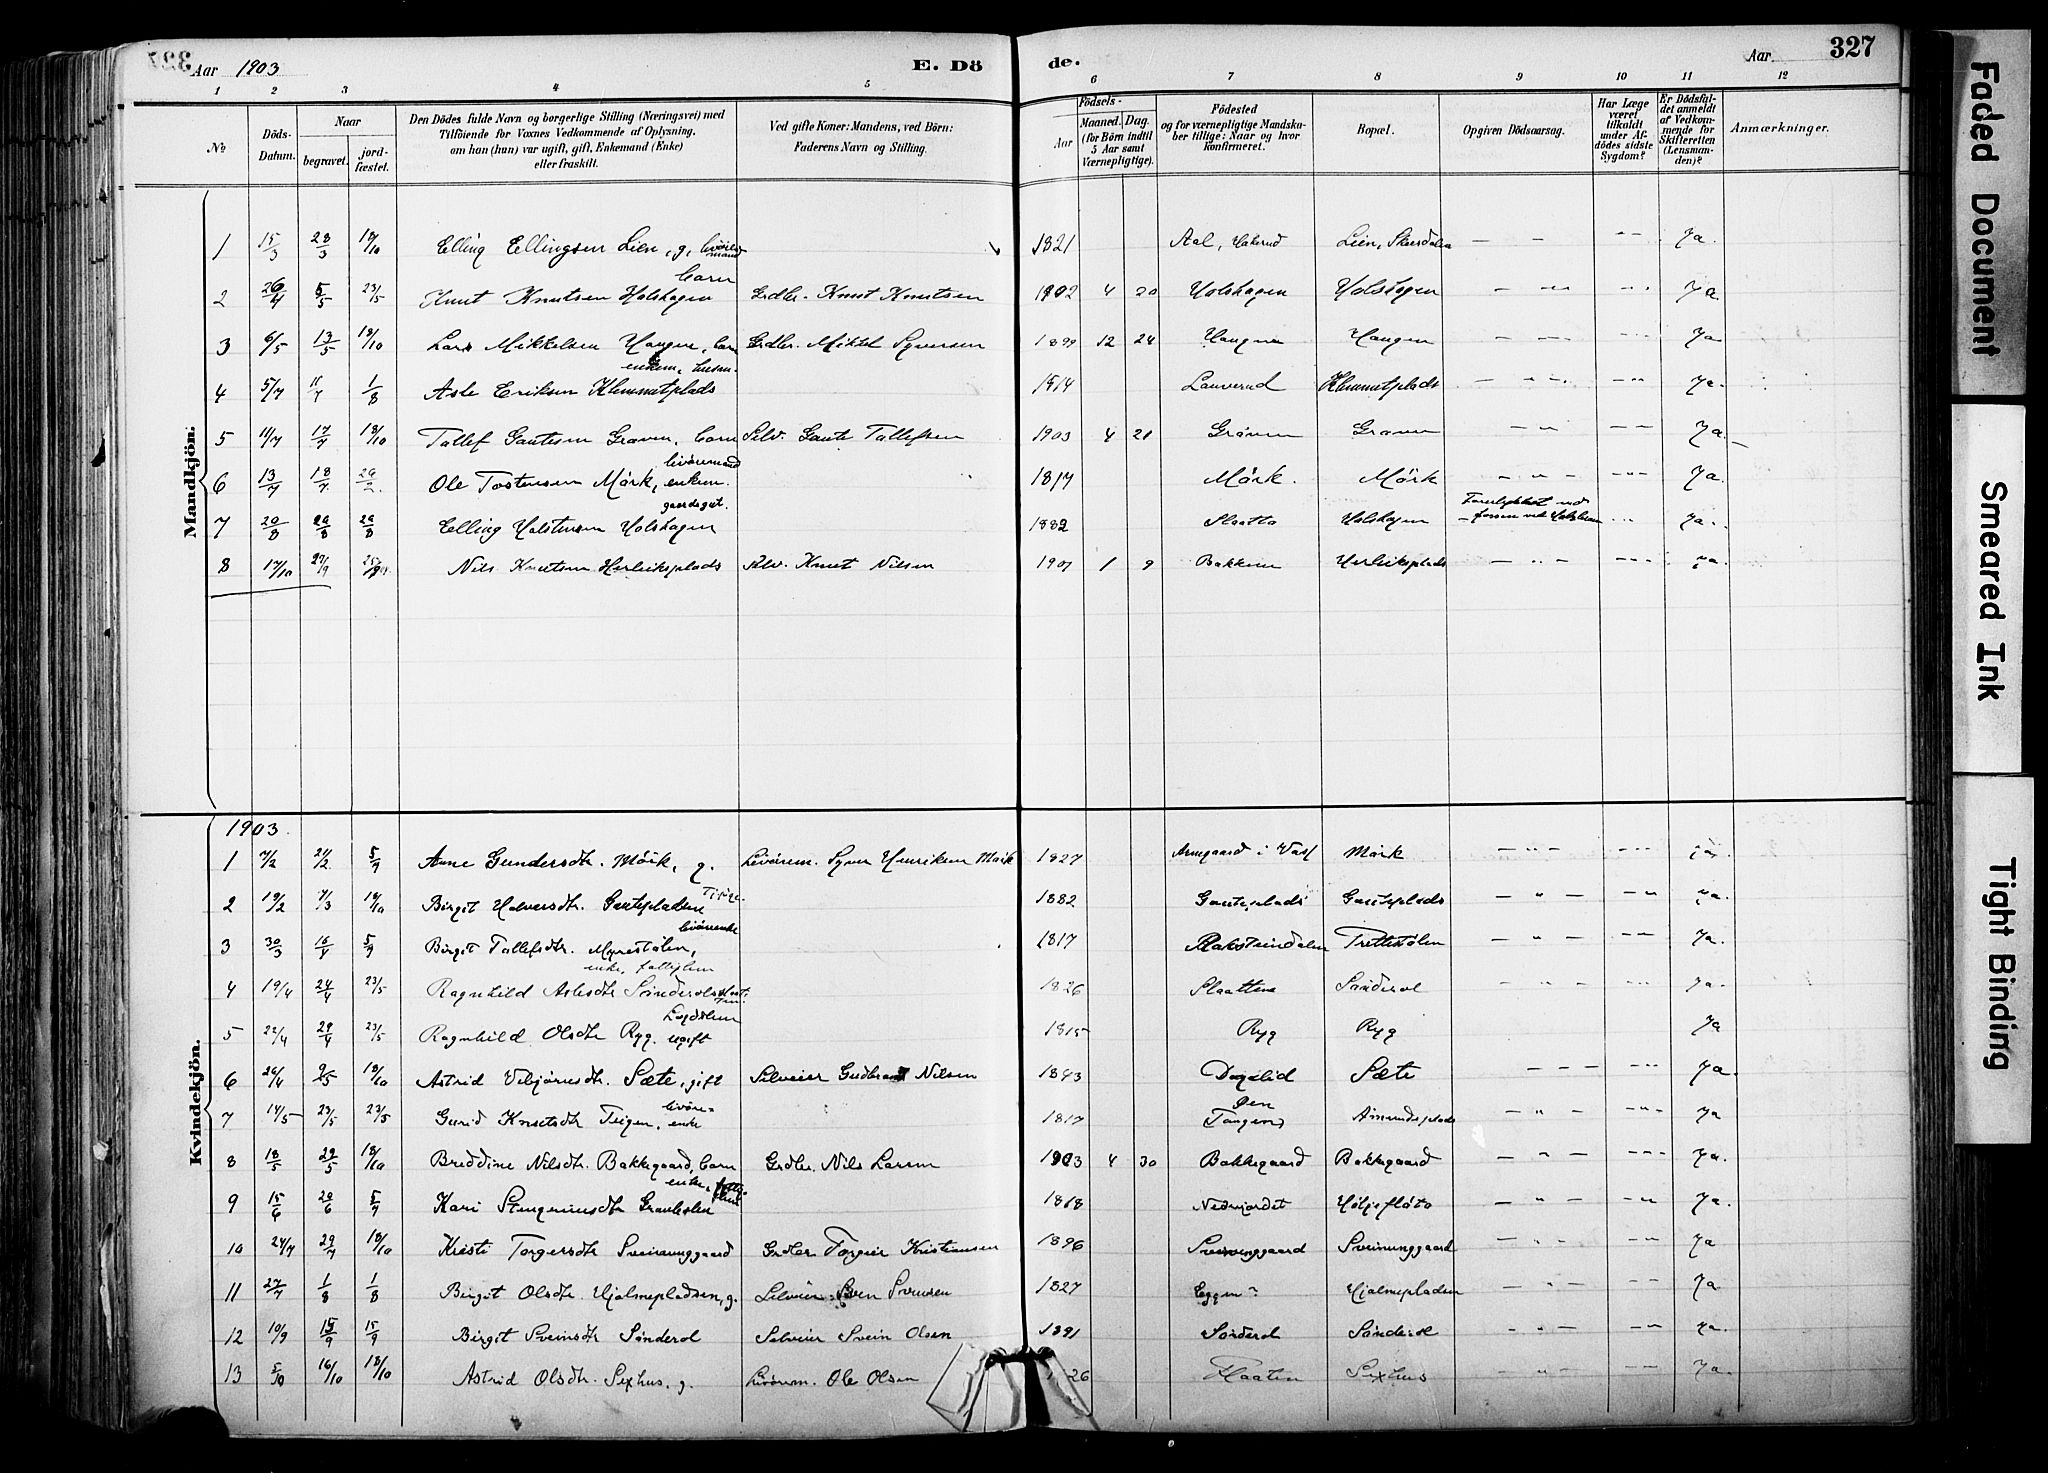 Aar 1903 E. Dö de. Aar 327
1 2 3 4 5 6 7 8 9 10 11 12
No Döds-Datum. Naar begravet. jord-fæstet. Den Dödes fulde Navn og borgerlige Stilling (Næringsvei) med Tilföiende for Voxnes Vedkommende af Oplysning, om han (hun) var ugift, gift, Enkemand (Enke) eller fraskilt. Ved gifte Koner: Mandens, ved Börn: Faderens Navn og Stilling. Födsels- Aar Maaned. Dag. (for Börn indtil 5 Aar samt Værnepligtige). Födested og for værnepligtige Mandskaber tillige: Naar og hvor konfirmeret. Bopæl. Opgiven Dödsaarsag. Har Læge været tilkaldt under Afdödes sidste Sygdom? Er Dödsfaldet anmeldt af Vedkommende for Skifteretten (Lensmanden)? Anmærkninger.
Mandkjön.
1 15/3 28/3 18/10 Elling Ellingsen Lien, g, 1821 Aal, Lien, Skurdalen — — Ja.
2 26/4 5/5 23/5 Knut Knutsen Holshagen barn Grdbr. Knut Knutsen 1902 4 20 Holshagen Holshagen — — Ja
3 6/5 13/5 18/10 Lars Mikkelsen Haugen, barn Grdbr. Mikkel Syversen 1899 12 24 Haugen Haugen — — Ja
4 5/7 11/7 1/8 Asle Eriksen Klemmetplads enkem, husm. 1814 Lauverud Klemmetplads — — Ja.
5 11/7 17/7 18/10 Tollef Gautesen Graven, barn Selv. Gaute Tollefsen 1903 4 21 Graven Graven — — Ja.
6 13/7 18/7 Ole Tostensen Mörk, enkem. livöremand 1817 Mörk. Mörk — — Ja
7 20/8 29/8 29/8 Elling Holstensen Holshagen gaardsgut. 1882 Slaatto Holshagen Ja.
8 17/10 27/9 Nils Knutsen Herleiksplads Selv. Knut Nilsen 1901 1 9 Bakken Herleiksplads — — ja.
Kvindekjön.
1903
1 7/2 21/2 5/7 Anne Gundersdtr. Mörk, g. Livörem. Syver Henriksen Mörk 1827 Mörk — — ja.
2 19/2 7/3 18/10 Birgit Halvorsdtr. Gauteplads 1882 Gauteplads Gauteplads — — ja.
3 30/3 16/4 5/7 Birgit Tollefsdtr. Myrestölen, livörenke 1817 Raksteindalen Trettestölen — — Ja.
4 19/4 24/4 23/5 Ragnhild Aslesdtr Sönderol enke, fattiglem 1826 Slaatten Sönderol — — Ja.
5 22/4 29/4 23/5 Ragnhild Olsdtr Ryg, ugift Legdslem 1815 Ryg Ryg Ja
6 26/4 9/5 18/10 Astrid Vebjörnsdtr. Sæte, gift Selveier Gudbrand Nilsen 1843 Dagalid Sæte — — Ja.
7 14/5 23/5 23/5 Gunid Knutsdtr Teigen, enke livöre= 1817 Amundsplads — — Ja
8 18/5 29/5 18/10 Breddine Nilsdtr. Bakkegaard, barn Grdbr. Nils Larsen 1903 4 30 Bakkegaard Bakkegaard — — Ja.
9 15/6 20/6 5/7 Kari Stengrimsdtr enke, 1818 Nedrejordet — — Ja.
10 24/7 29/7 18/10 Kristi Torgersdtr Sveinunggaard Grdbr Torgeir Kristiansen 1896 Sveinunggaard Sveinunggaard — — Ja
11 27/7 1/8 1/8 Birgit Olsdtr. Hjalmepladsen, g. Selveier Sven Svensen 1827 Eggen? Hjalmepladsen — — Ja
12 10/9 15/9 15/9 Birgit Sveinsdtr Sönderol Selveier Svein Olsen 1891 Sönderol Sönderol — — Ja.
13 5/10 16/10 18/10 Astrid Olsdtr. Sexhus, g. Livörem. Ole Olsen 26 Flaaten Sexhus — — Ja.
Faded Document
Smeared Ink
Tight Binding